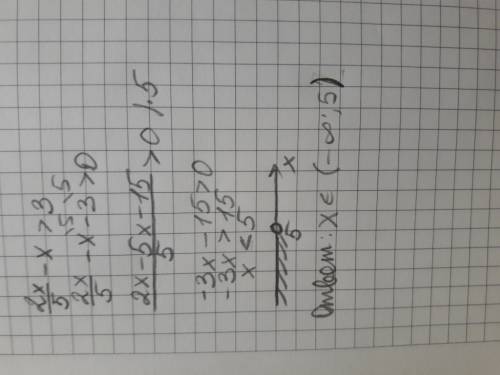 2x/5 - x > 3
2x/5 - x\5 - 3\5 > 0
2x-5x-15/5 > 0 | ·5
-3x-15>0
-3x > 15
x < 5
5 x
Ответ: x ∈ (-∞; 5)